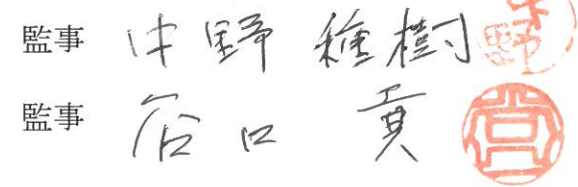 監事 中野 種樹 中野
監事 谷口 貢